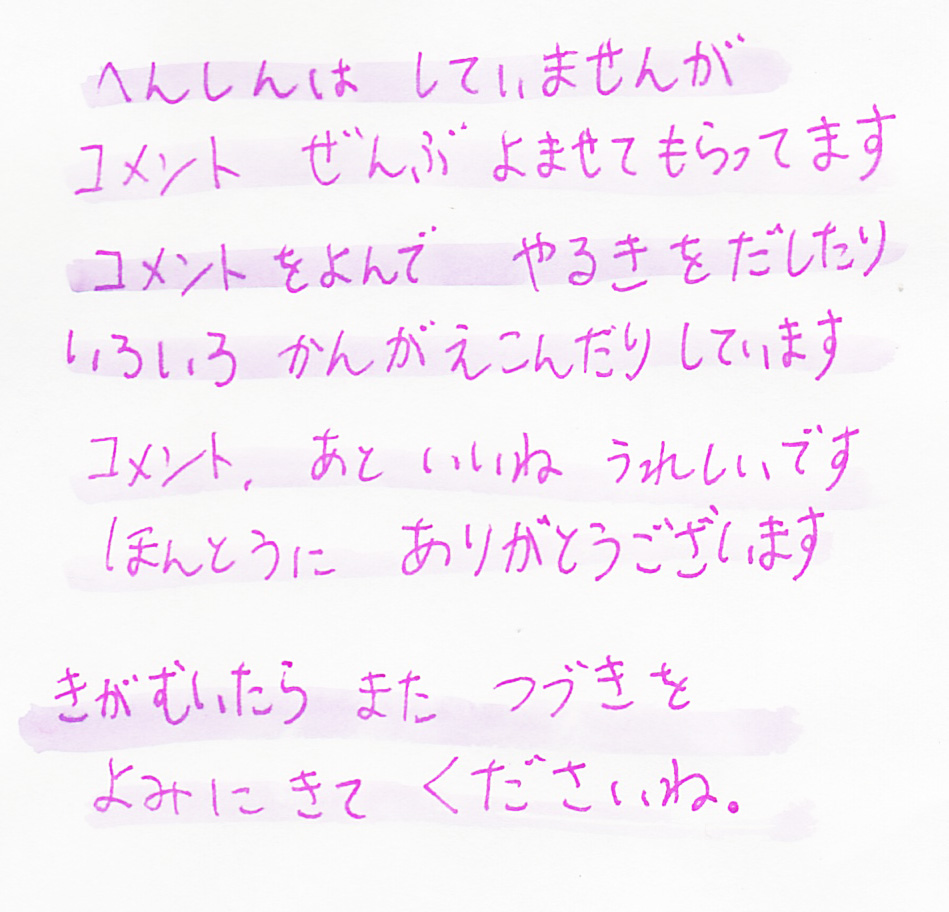 へんしんは していませんが
コメント ぜんぶ よませてもらってます
コメントをよんで やるきをだしたり
いろいろ かんがえこんだりしています
コメント、あと いいね うれしいです
ほんとうに ありがとうございます
きがむいたら また つづきを
よみにきて くださいね。